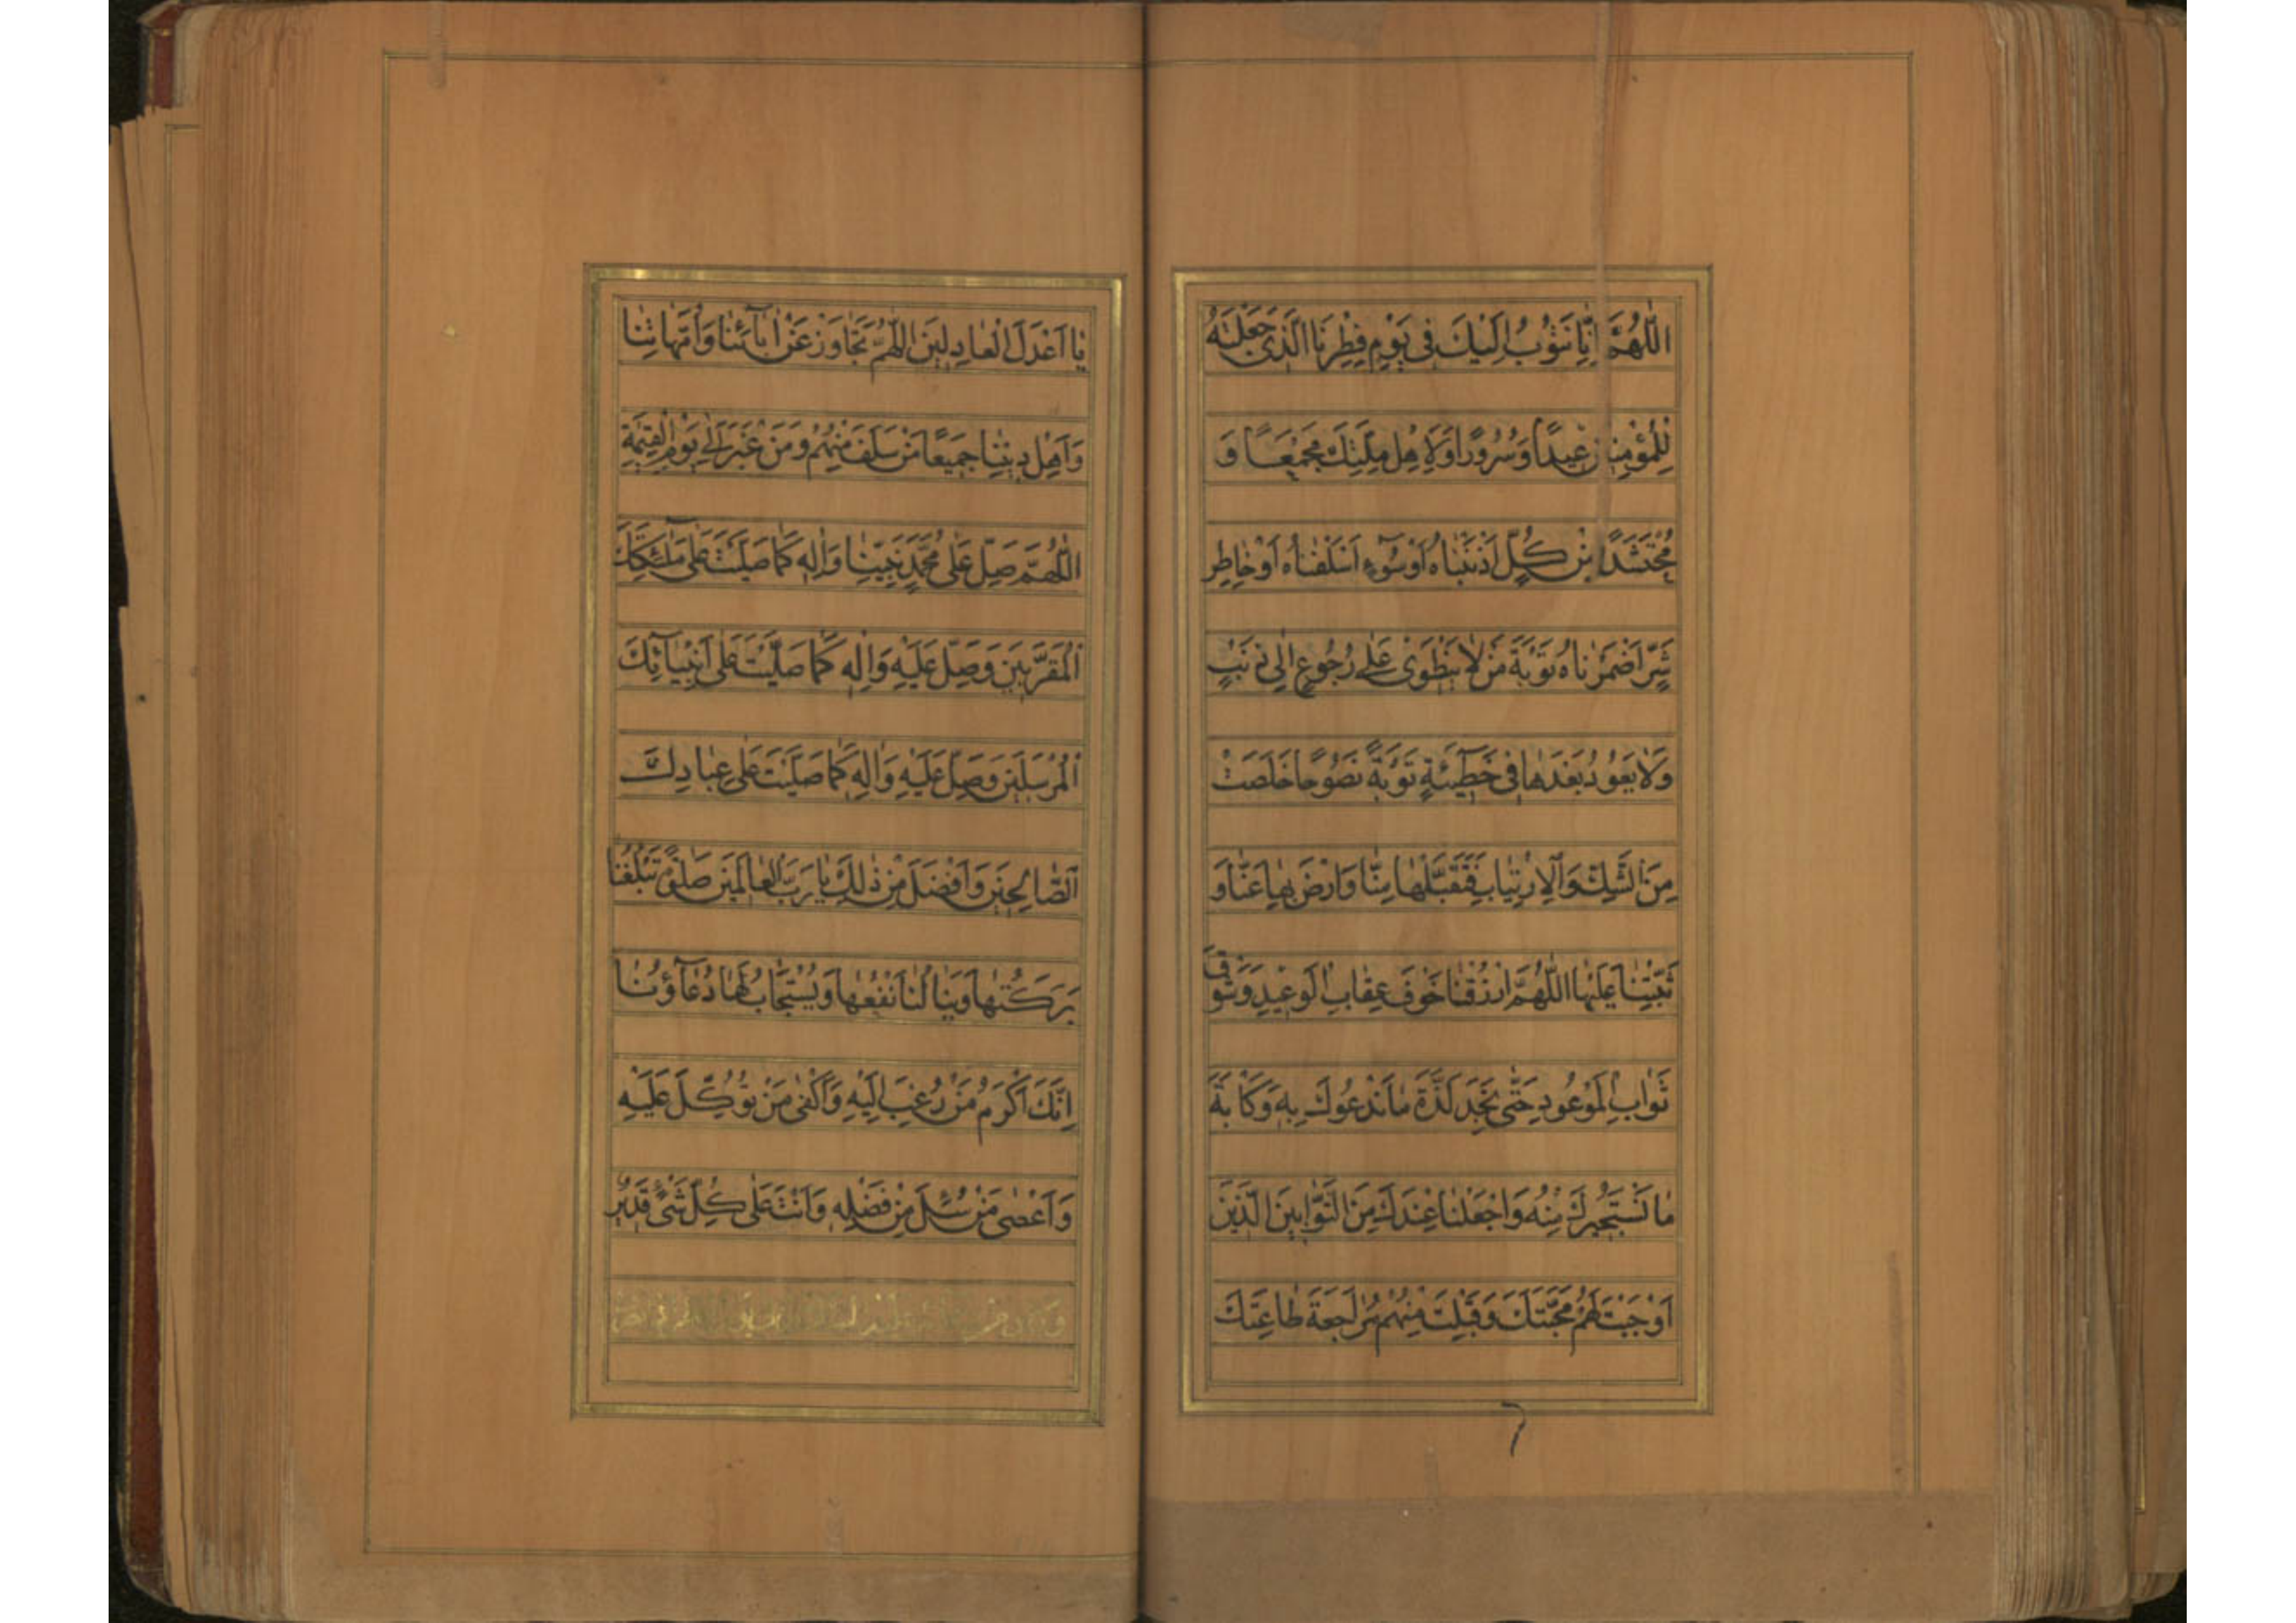 اَللّٰهُمَّ اِنّٰا نَتُوْبُ اِلَيْكَ فى يَوْمِ فِطْرِنَا الَّذى جَعَلْتَهُ
لِلْمُؤْمِنينَ عيدًا وَسُرُورًا وَلِاَهْلِ مِلَّتِكَ مَجْمَعًا وَ
مُحْتَشَدًا مِنْ كُلِّ ذَنْبٍ اَذْنَبْنٰاهُ اَوْ سُوۤءٍ اَسْلَفْنٰاهُ اَوْ خٰاطِرِ
شَرٍّ اَضْمَرْنٰاهُ تَوْبَةَ مَنْ لٰا يَنْطَوى عَلٰى رُجُوعٍ اِلٰى ذَنْبٍ
وَلٰا يَعُودُ بَعْدَهٰا فى خَطيۤئَةٍ تَوْبَةً نَصُوحًا خَلَصَتْ
مِنَ الشَّكِّ وَالْاِرْتِيٰابِ فَتَقَبَّلْهٰا مِنّٰا وَارْضَ بِهٰا عَنّٰا وَ
ثَبِّتْنٰا عَلَيْهٰا اَللّٰهُمَّ ارْزُقْنٰا خَوْفَ عِقٰابِ الْوَعيدِ وَشَوْقَ
ثَوٰابِ الْمَوْعُودِ حَتّٰى نَجِدَ لَذَّةَ مٰا نَدْعُوكَ بِه وَكَاٰبَةَ
مٰا نَسْتَجيرُكَ مِنْهُ وَاجْعَلْنٰا عِنْدَكَ مِنَ التَّوّٰابينَ الَّذينَ
اَوْجَبْتَ لَهُمْ مَحَبَّتَكَ وَقَبِلْتَ مِنْهُمْ مُرٰاجَعَةَ طٰاعَتِكَ
يٰا اَعْدَلَ الْعٰادِلينَ اَللّٰهُمَّ تَجٰاوَزْ عَنْ اٰبٰاۤئِنٰا وَاُمَّهٰاتِنٰا
وَاَهْلِ دينِنٰا جَميعًا مَنْ سَلَفَ مِنْهُمْ وَمَنْ غَبَرَ اِلٰى يَوْمِ الْقِيٰمَةِ
اَللّٰهُمَّ صَلِّ عَلٰى مُحَمَّدٍ نَبِيِّنٰا وَاٰلِه كَمٰا صَلَّيْتَ عَلٰى مَلٰۤئِكَتِكَ
الْمُقَرَّبينَ وَصَلِّ عَلَيْهِ وَاٰلِه كَمٰا صَلَّيْتَ عَلٰى اَنْبِيٰاۤئِكَ
الْمُرْسَلينَ وَصَلِّ عَلَيْهِ وَاٰلِه كَمٰا صَلَّيْتَ عَلٰى عِبٰادِكَ
الصّٰالِحينَ وَاَفْضَلَ مِنْ ذٰلِكَ يٰا رَبَّ الْعٰالَمينَ صَلٰوةً تَبْلُغُنٰا
بَرَكَتُهٰا وَيَنٰالُنٰا نَفْعُهٰا وَيُسْتَجٰابُ لَهٰا دُعٰاۤؤُنٰا
اِنَّكَ اَكْرَمُ مَنْ رُغِبَ اِلَيْهِ وَاَكْفٰى مَنْ تُوُكِّلَ عَلَيْهِ
وَاَعْطٰى مَنْ سُئِلَ مِنْ فَضْلِه وَاَنْتَ عَلٰى كُلِّ شَىْءٍ قَديرٌ